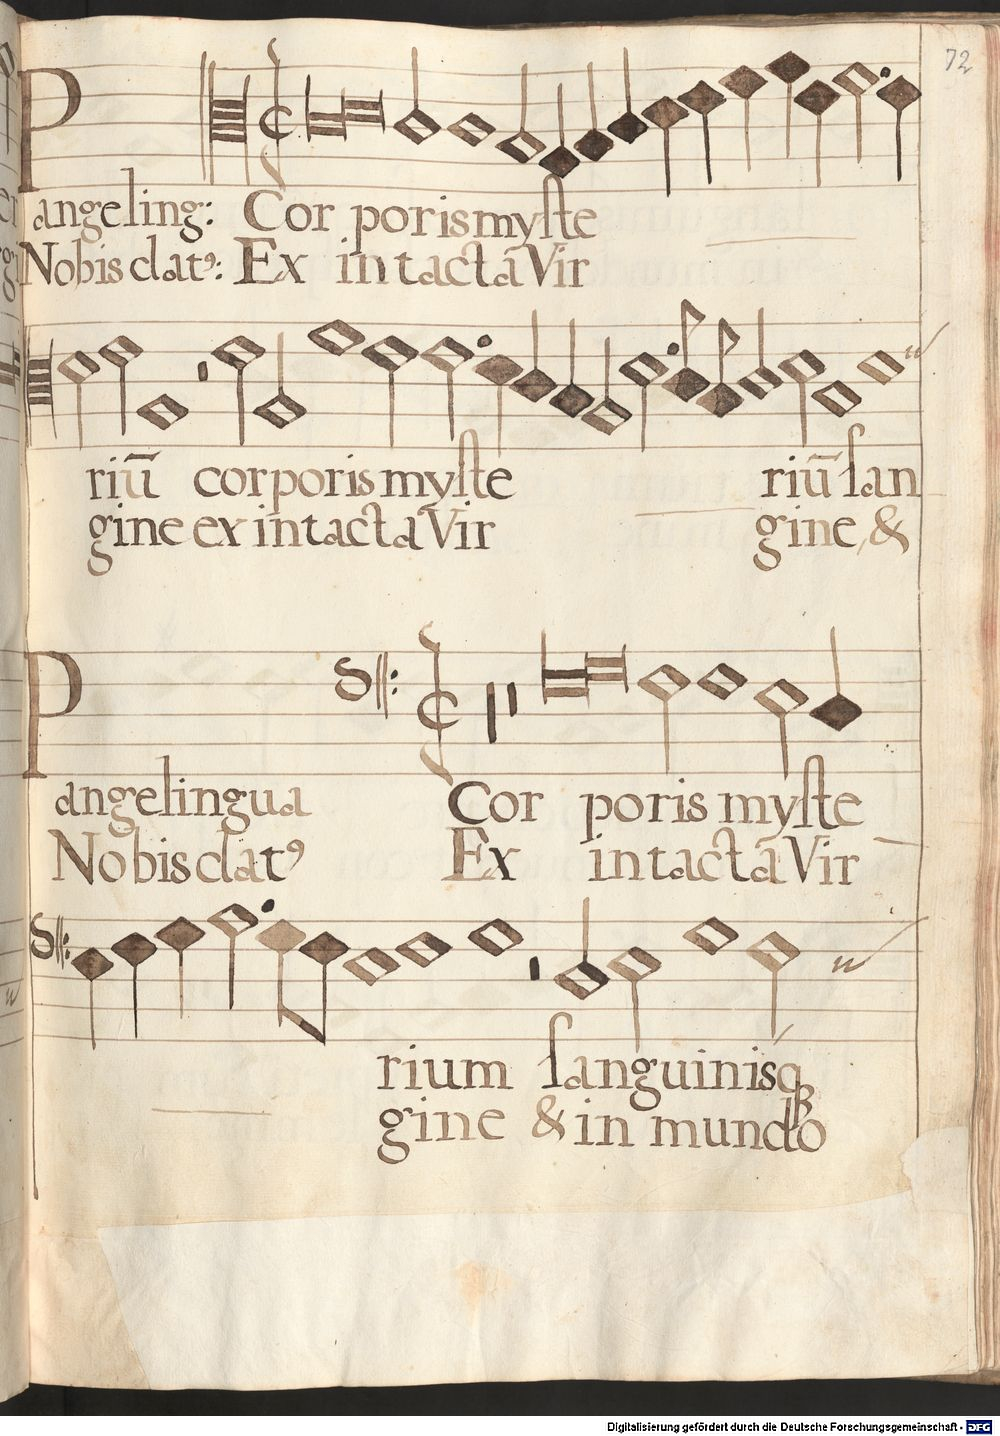 72
Pangeling: Corporis myste
Nobis datꝰ: Ex intactā Vir
riū corporis myste riū san
gine ex intacta Vir gine, &
Pangelingua Corporis myste
Nobis datꝰ Ex intactā Vir
rium sanguinisqꝫ
gine & in mundo
Digitalisierung gefördert durch die Deutsche Forschungsgemeinschaft - DFG